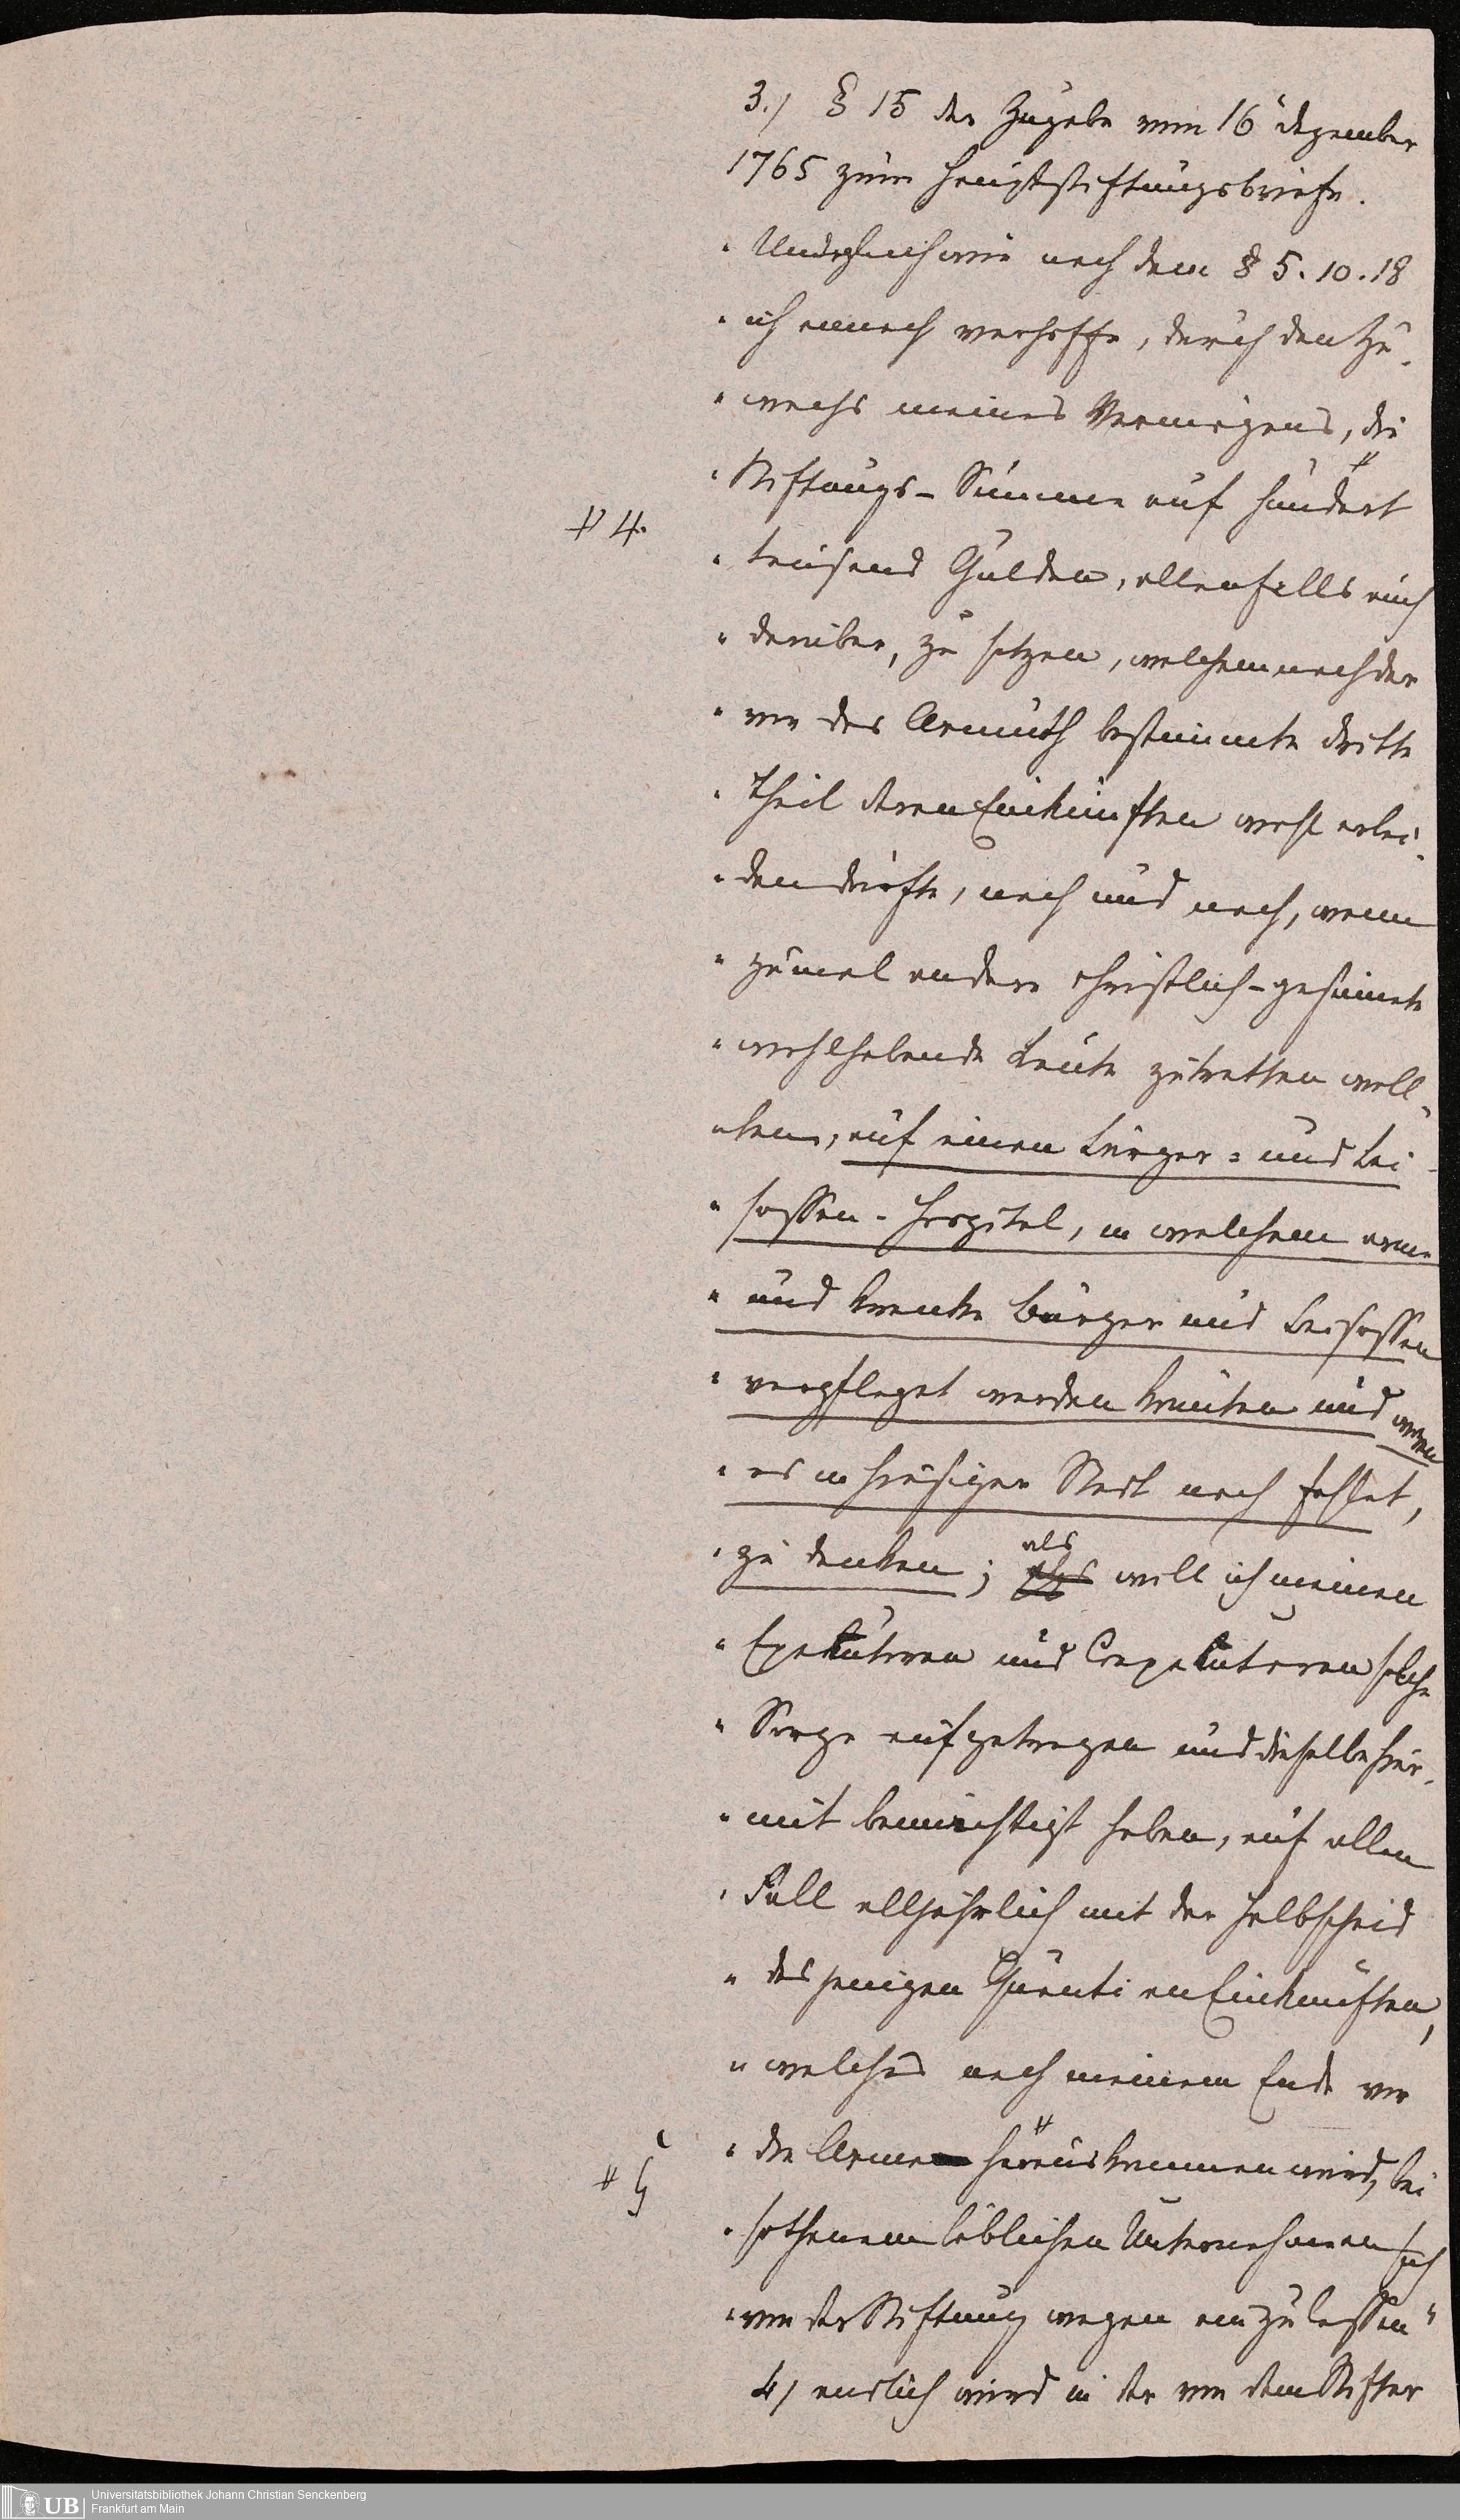 3.) § 15 der Zugabe vom 16 dezember
1765 zum Hauptstiftungsbriefe.
" Und gleichwie nach dem § 5. 10. 18
" ich annoch verhoffe, durch den Zu-
" wachs meines Vermögens, die
" Stiftungs-Summe auf hundert
# 4.
" tausend Gulden, allenfalls auch
" darüber, zu setzen, welchemnach der
" vor das Armuth bestimmte dritte
" Theil deren Einkünften wohl erlei-
" den dürfte, nach und nach, wenn
" zumal andere christlich-gesinnte
" wohlhabende Leute zutretten woll-
" ten, auf einen Bürger- und Bei-
" sassen-Hospital, in welchem arme
" und kranke Bürger und Beisassen
" verpfleget werden könnten und woran
" es in hiesiger Stadt noch fehlet,
" zu denken; als will ich meinen
" Exekutoren und Conexekutoren solche
" Sorge aufgetragen und dieselbe hier-
" mit bemächtigt haben, auf allen
" Fall alljährlich mit der Halbscheid
" desjenigen Quanti an Einkünften,
" welches nach meinem Ende vor
" die Arme herauskommen wird, bei
# 5
" sothanem löblichen Unternehmen sich
" von der Stiftung wegen einzulassen "
4) endlich wird in der von dem Stifter
UB Universitätsbibliothek Johann Christian Senckenberg
Frankfurt am Main